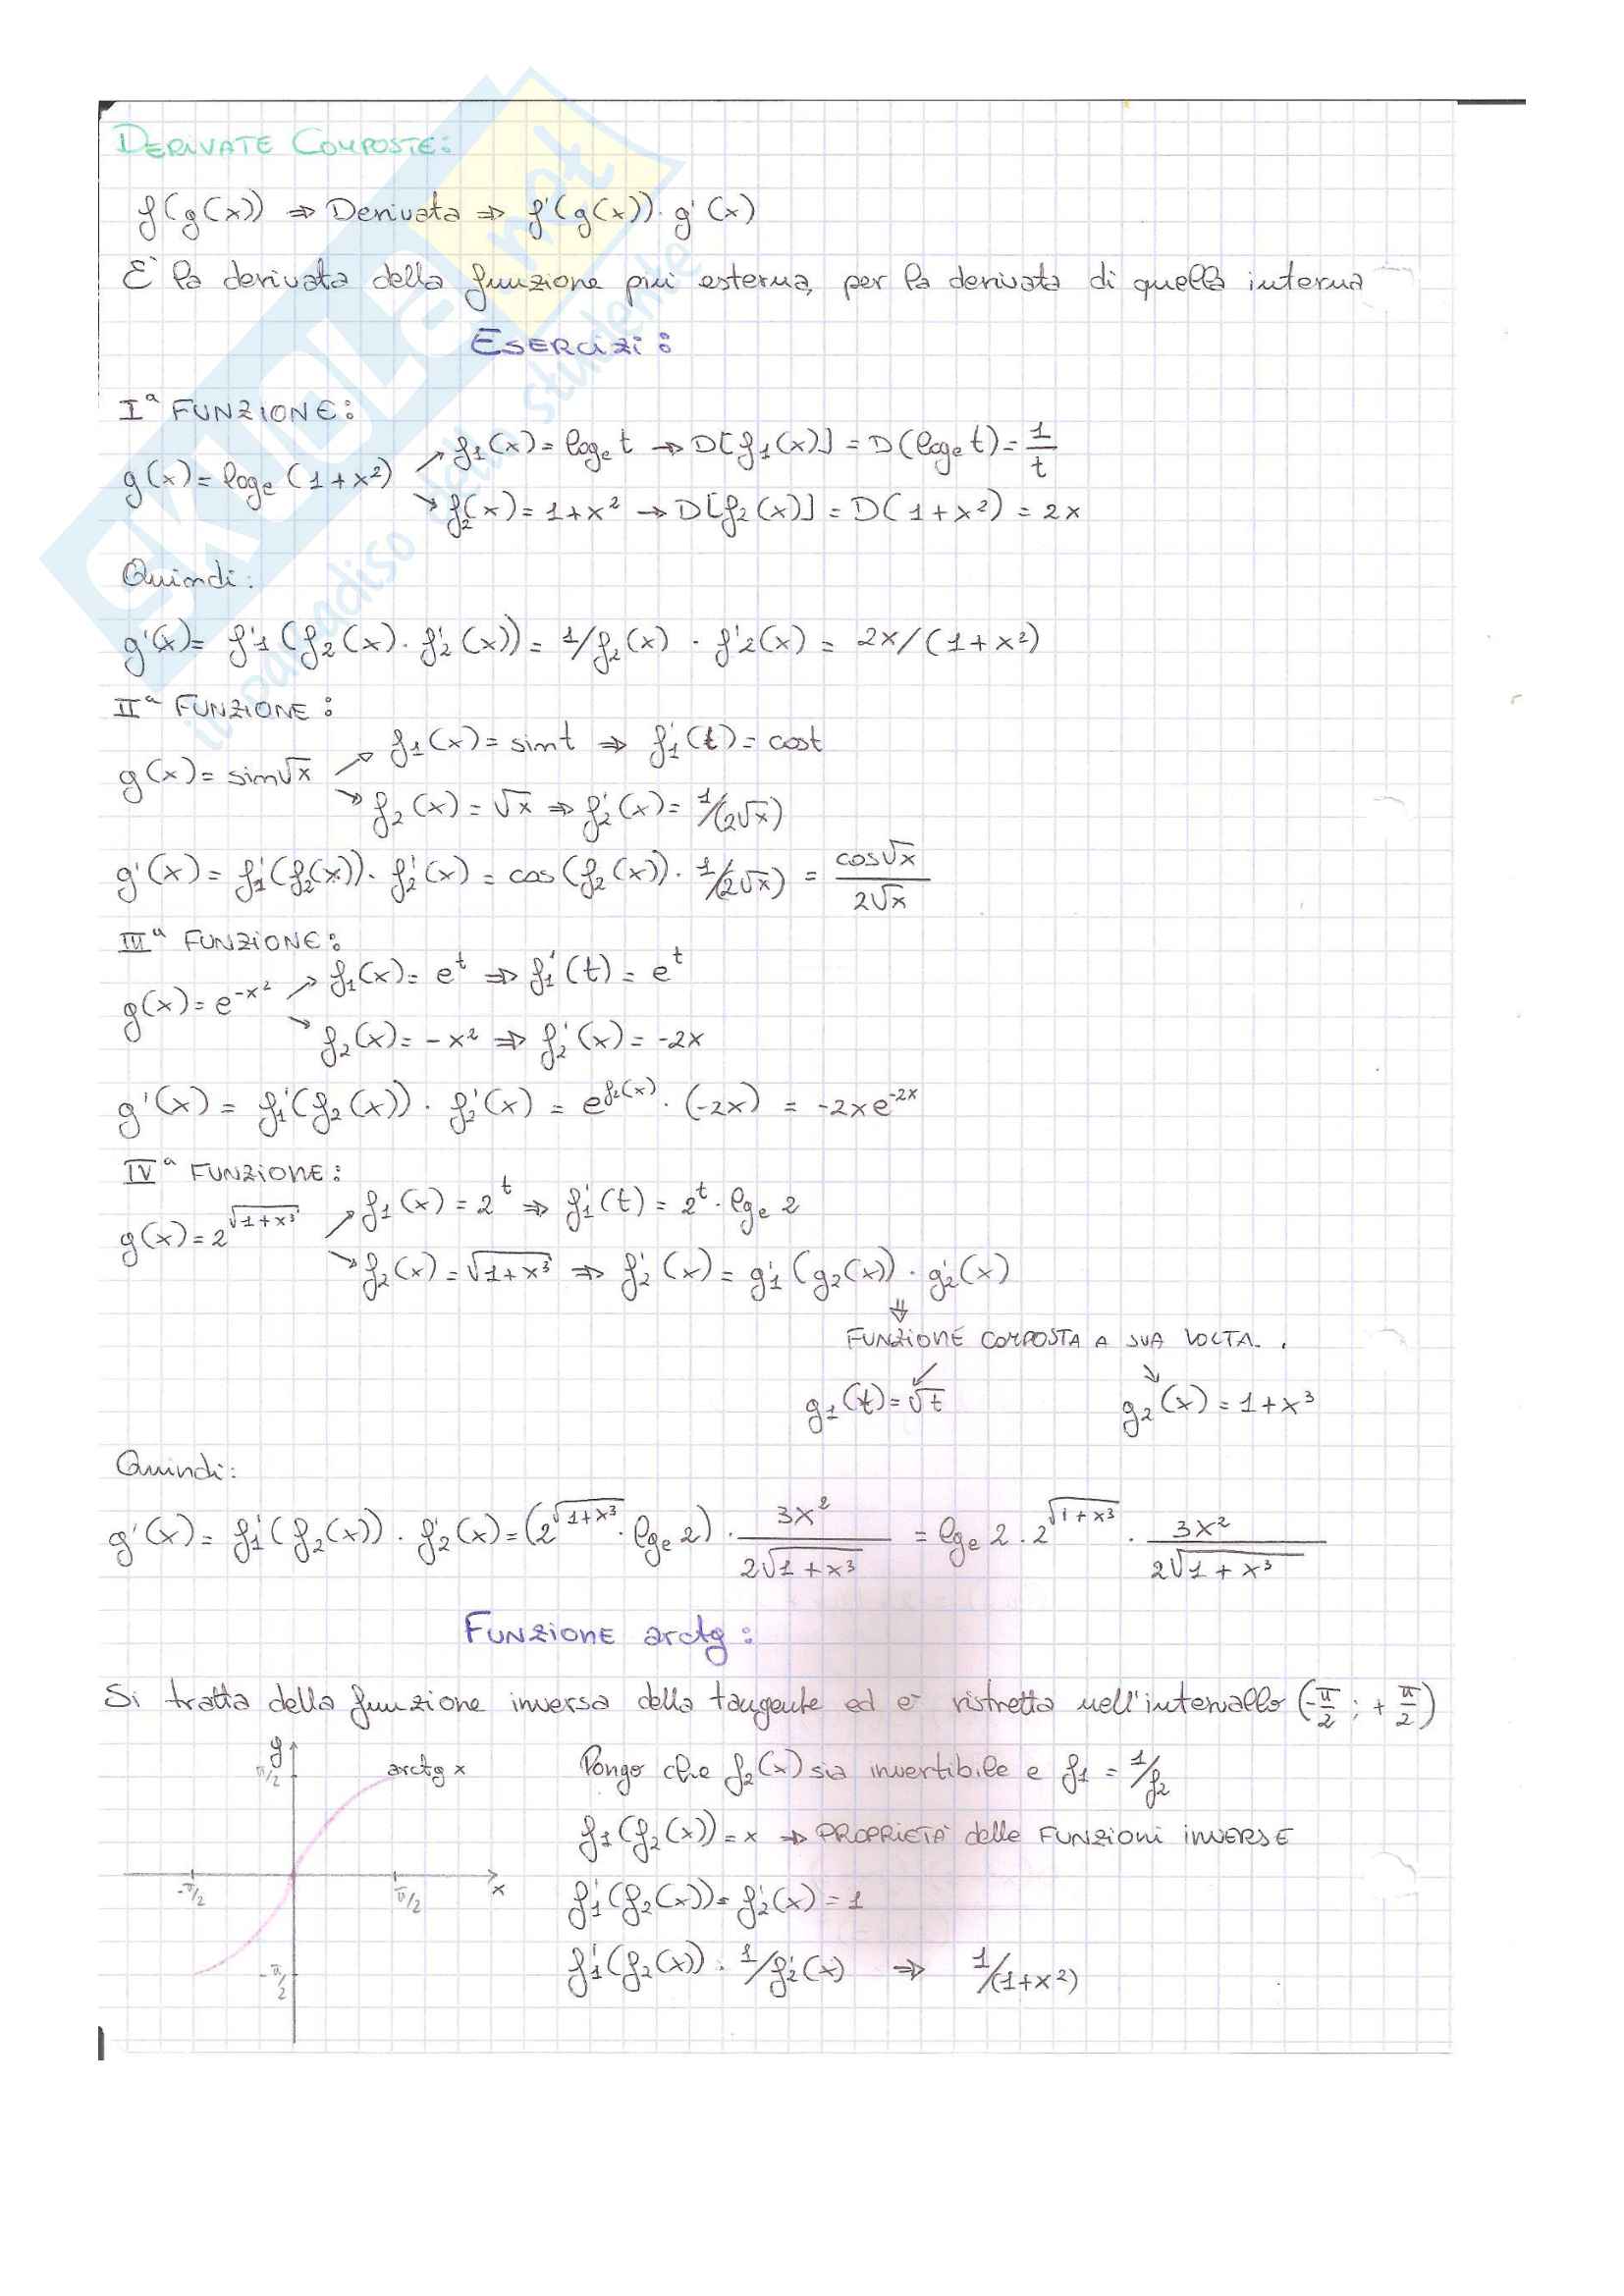 DERIVATE COMPOSTE:
f(g(x)) ⇒ Derivata ⇒ f'(g(x)) · g'(x)
E' la derivata della funzione più esterna, per la derivata di quella interna
ESERCIZI:
Iª FUNZIONE:
g(x) = logₑ (1+x²) ↗ f₁(x) = logₑ t → D[f₁(x)] = D(logₑ t) = 1/t
↘ f₂(x) = 1+x² → D[f₂(x)] = D(1+x²) = 2x
Quindi:
g'(x) = f'₁(f₂(x) · f'₂(x)) = 1/f₂(x) · f'₂(x) = 2x/(1+x²)
IIª FUNZIONE:
g(x) = sin√x ↗ f₁(x) = sin t ⇒ f₁'(t) = cos t
↘ f₂(x) = √x ⇒ f₂'(x) = 1/(2√x)
g'(x) = f₁'(f₂(x)) · f₂'(x) = cos(f₂(x)) · 1/(2√x) = cos√x / 2√x
IIIª FUNZIONE:
g(x) = e^(-x²) ↗ f₁(x) = e^t ⇒ f₁'(t) = e^t
↘ f₂(x) = -x² ⇒ f₂'(x) = -2x
g'(x) = f₁'(f₂(x)) · f₂'(x) = e^(f₂(x)) · (-2x) = -2xe^(-2x)
IVª FUNZIONE:
g(x) = 2^(√(1+x³)) ↗ f₁(x) = 2^t ⇒ f₁'(t) = 2^t · lgₑ 2
↘ f₂(x) = √(1+x³) ⇒ f₂'(x) = g₁'(g₂(x)) · g₂'(x)
⇓
FUNZIONE COMPOSTA A SUA VOLTA.
g₁(t) = √t g₂(x) = 1+x³
Quindi:
g'(x) = f₁'(f₂(x)) · f₂'(x) = (2^(√(1+x³)) · lgₑ 2) · 3x² / 2√(1+x³) = lgₑ 2 · 2^(√(1+x³)) · 3x² / 2√(1+x³)
FUNZIONE arctg:
Si tratta della funzione inversa della tangente ed è ristretta nell'intervallo (-π/2 ; +π/2)
y
π/2
arctg x
-π/2
π/2
x
-π/2
Pongo che f₂(x) sia invertibile e f₁ = 1/f₂
f₁(f₂(x)) = x ⇒ PROPRIETÀ delle FUNZIONI INVERSE
f₁'(f₂(x)) · f₂'(x) = 1
f₁'(f₂(x)) : 1/f₂'(x) ⇒ 1/(1+x²)
SKUOLA.net
il paradiso dello studente